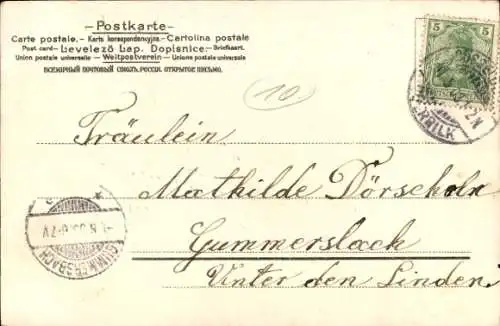 Postkarte
Carte postale. - Karta korespondencyjna. - Cartolina postale
Post card - Levelező Lap. Dopisnice. - Briefkaart.
Union postale universelle - Weltpostverein - Unione postale universale
ВСЕМІРНЫЙ ПОЧТОВЫЙ СОЮЗЪ. РОССІЯ. ОТКРЫТОЕ ПИСЬМО.
5 5
10
Fräulein
Mathilde Dörscheln
Gummersbach
Unter den Linden
GUMMERSBACH